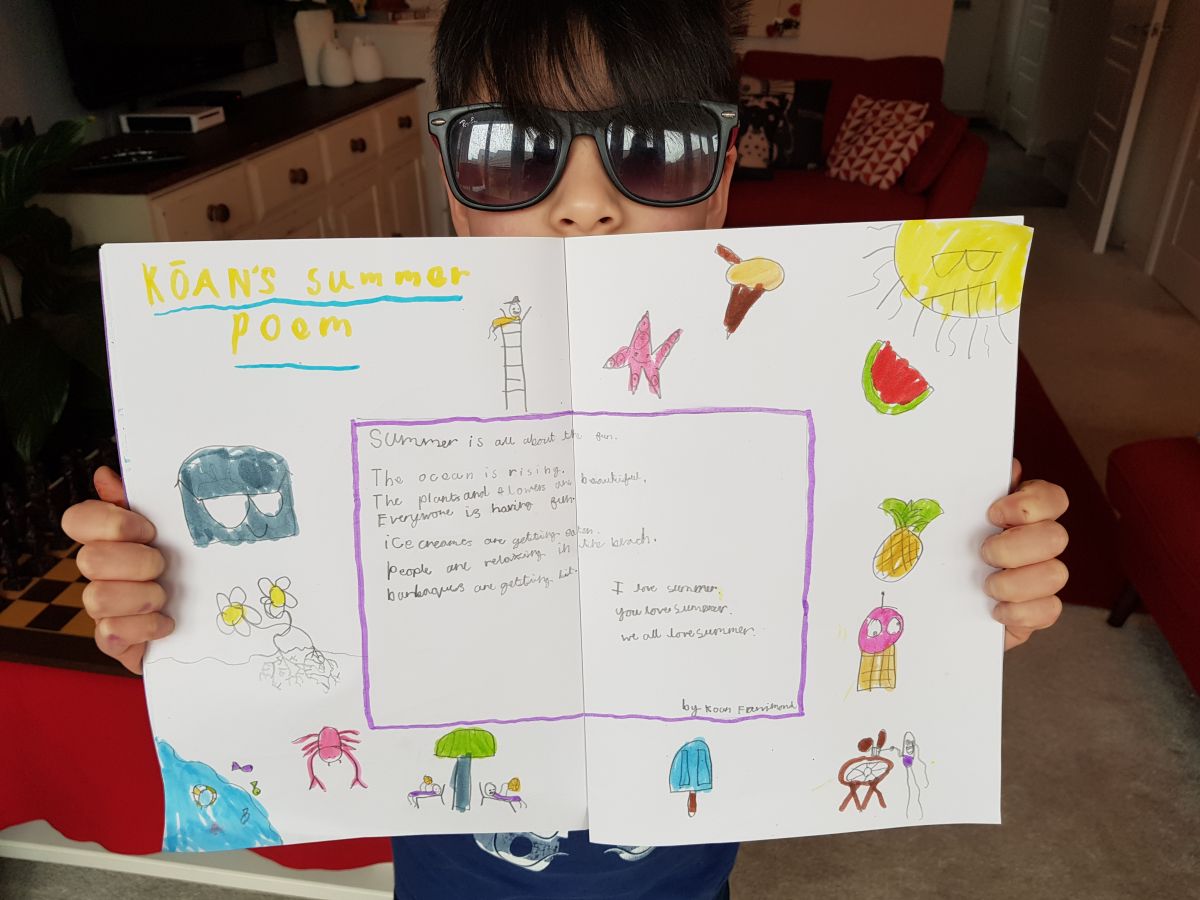 KŌAN'S summer
poem
Summer is all about the fun.
The ocean is rising.
The plants and flowers are beautiful.
Everyone is having fun.
ice creames are getting eaten.
people are relaxing in the beach.
are getting hot.
I love summer.
you love summer.
we all love summer.
by Koan
Ray-Ban